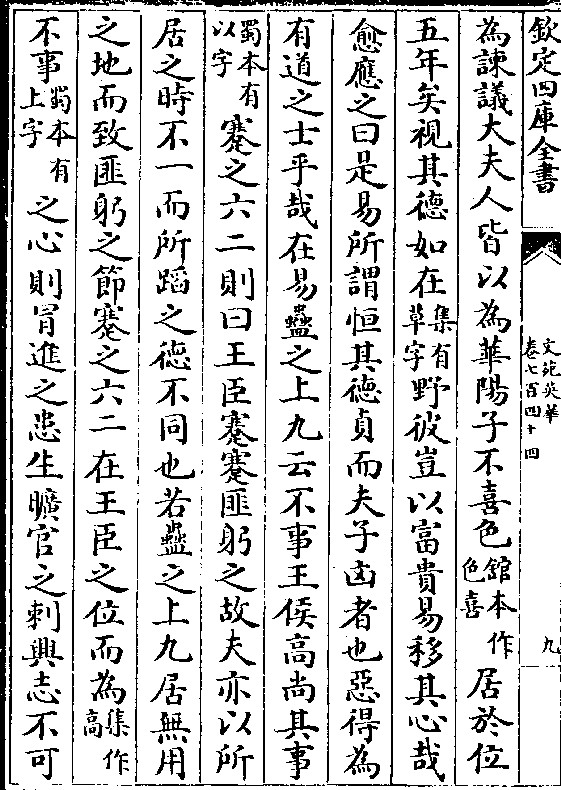 欽定四庫全書
文苑英華
卷七百四十四
九
為諫議大夫人皆以為華陽子不喜色館本作色喜居於位
五年矣視其德如在集有草字野彼豈以富貴易移其心哉
愈應之曰是易所謂恒其德貞而夫子凶者也惡得為
有道之士乎哉在易蠱之上九云不事王侯高尚其事
蜀本有以字蹇之六二則曰王臣蹇蹇匪躬之故夫亦以所
居之時不一而所蹈之德不同也若蠱之上九居無用
之地而致匪躬之節蹇之六二在王臣之位而為集作高
不事蜀本有上字之心則冐進之患生曠官之刺興志不可